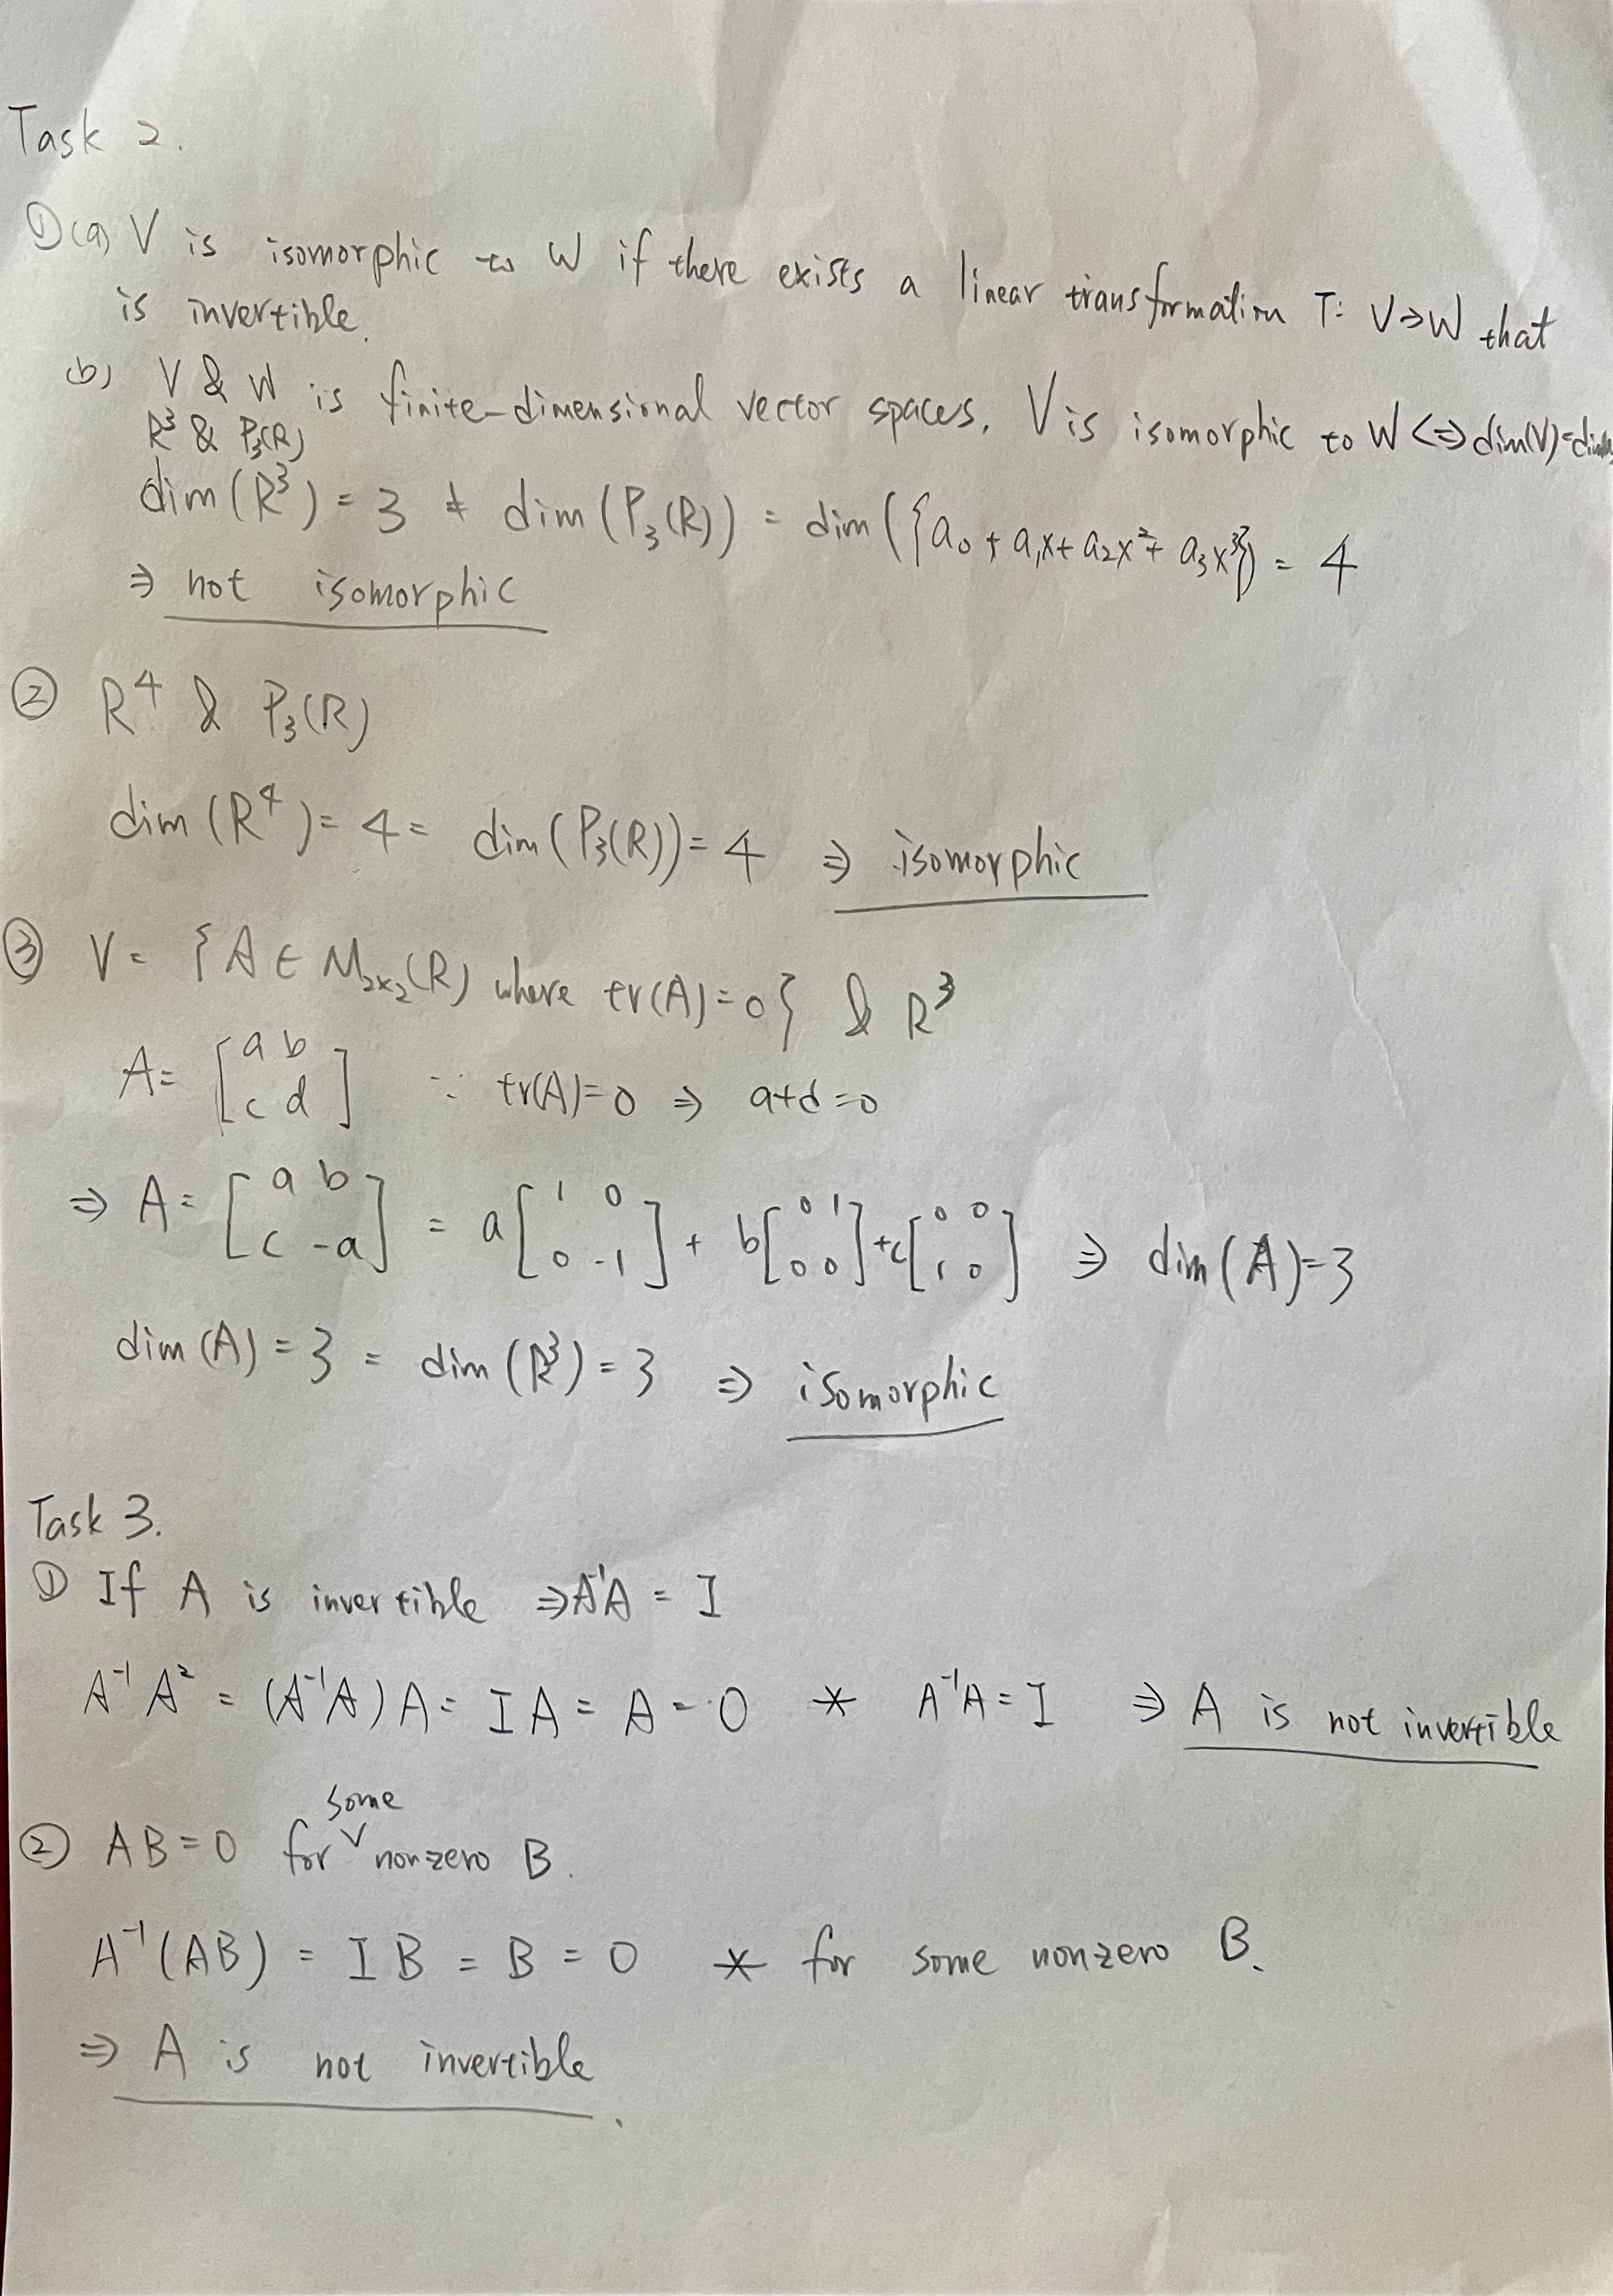 Task 2.
① (a) V is isomorphic to W if there exists a linear transformation T: V→W that
is invertible.
(b) V & W is finite-dimensional vector spaces. V is isomorphic to W <=> dim(V)=dim
R³ & P₃(R)
dim(R³) = 3 ≠ dim(P₃(R)) = dim({a₀ + a₁x + a₂x² + a₃x³}) = 4
⇒ not isomorphic
② R⁴ & P₃(R)
dim(R⁴) = 4 = dim(P₃(R)) = 4 ⇒ isomorphic
③ V = {A ∈ M₂ₓ₂(R) where tr(A)=0} & R³
A = [a b; c d] ∵ tr(A)=0 ⇒ a+d=0
⇒ A = [a b; c -a] = a[1 0; 0 -1] + b[0 1; 0 0] + c[0 0; 1 0] ⇒ dim(A)=3
dim(A) = 3 = dim(R³) = 3 ⇒ isomorphic
Task 3.
① If A is invertible ⇒ A⁻¹A = I
A⁻¹A² = (A⁻¹A)A = IA = A = 0 * A⁻¹A = I ⇒ A is not invertible
② AB = 0 for some nonzero B.
A⁻¹(AB) = IB = B = 0 * for some nonzero B.
⇒ A is not invertible.